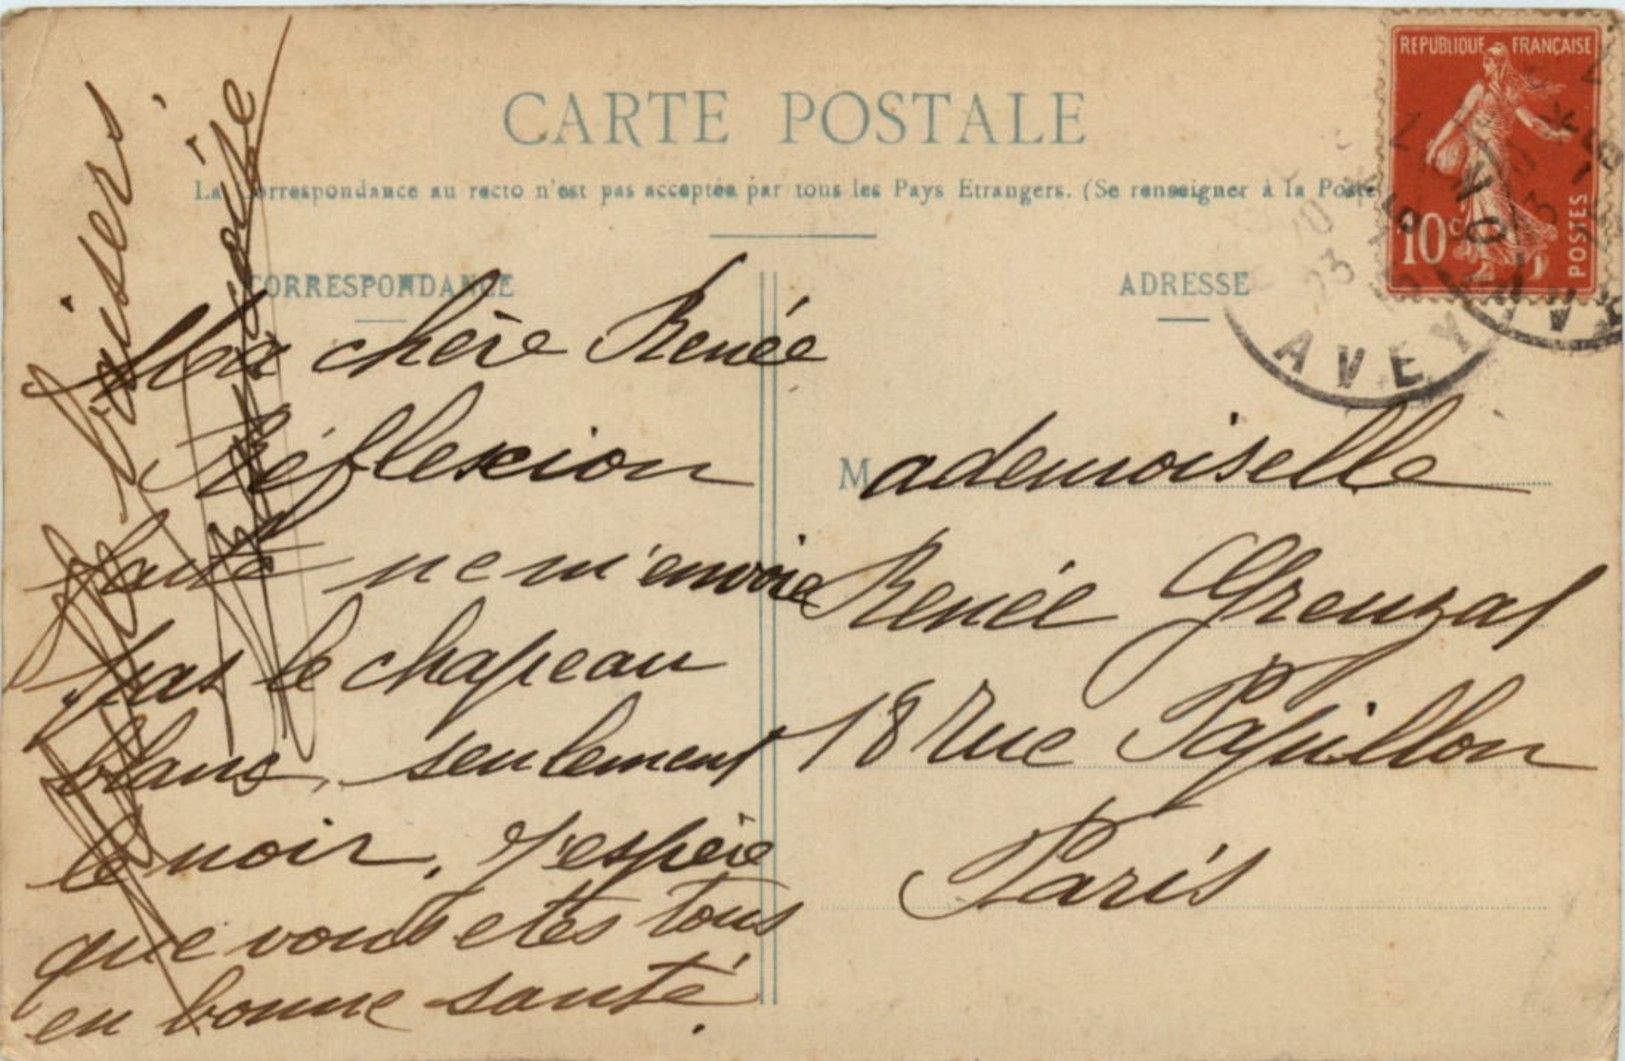 CARTE POSTALE
La Correspondance au recto n'est pas acceptée par tous les Pays Etrangers. (Se renseigner à la Poste
REPUBLIQUE FRANÇAISE
10c
POSTES
AVEY
CORRESPONDANCE
ADRESSE
Ma chère Renée
Réflexion
faite ne m'envoie
pas le chapeau
blanc, seulement
le noir. J'espère
que vous etes tous
en bonne santé.
Baisers
Mademoiselle
Renée Greuzat
18 rue Papillon
Paris